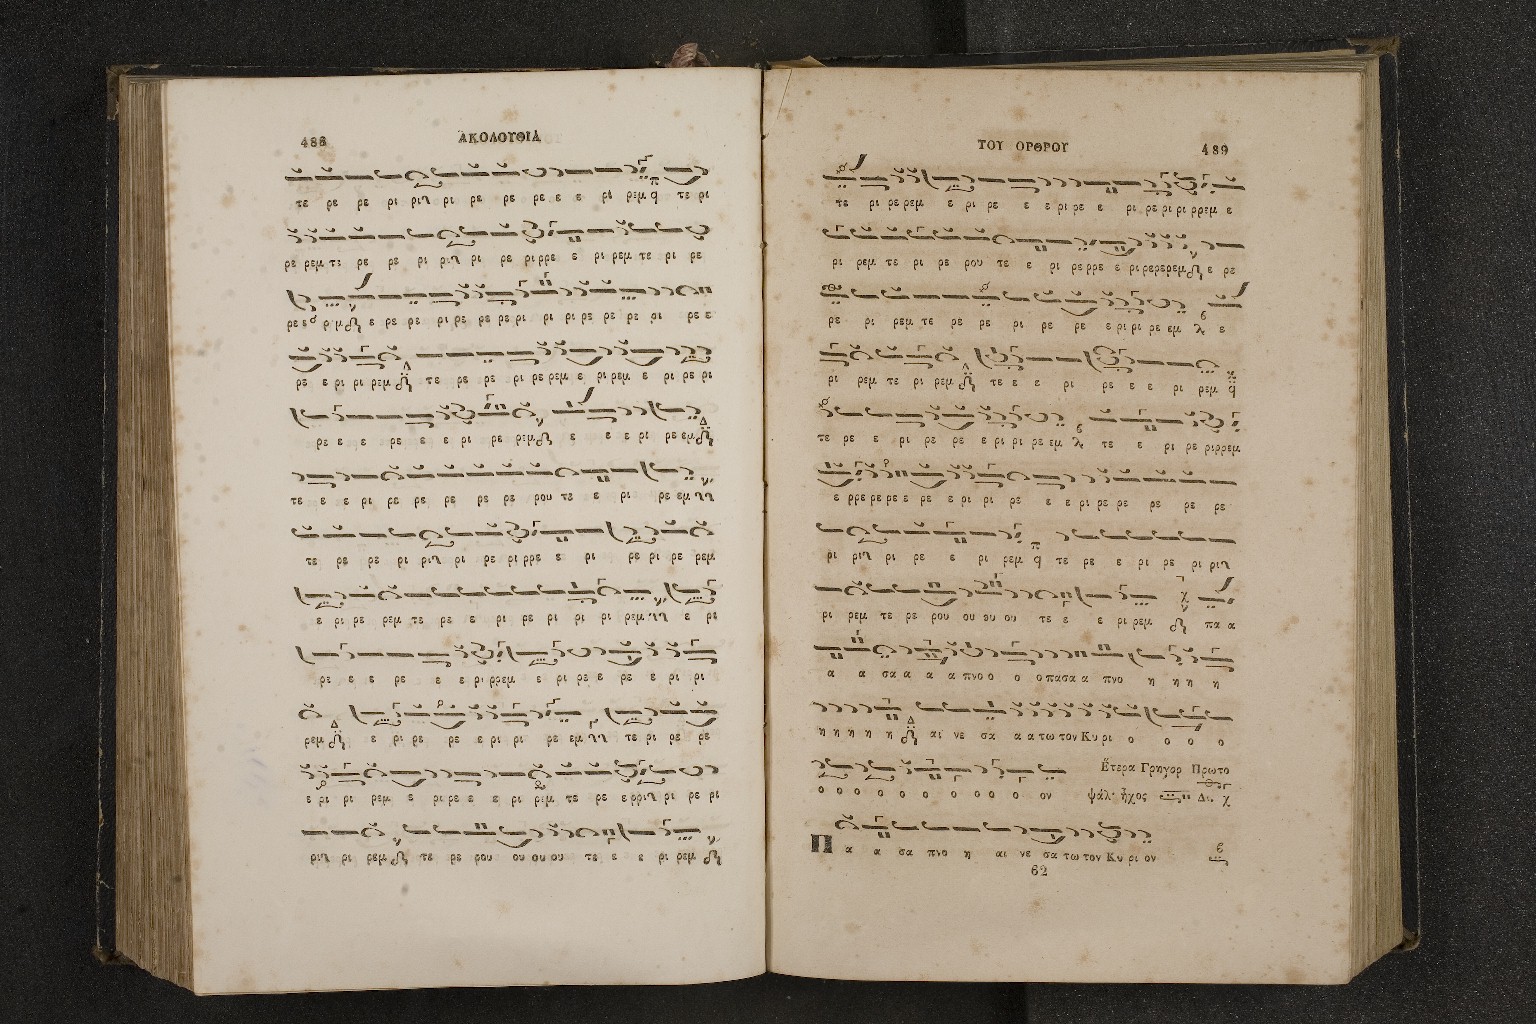 488 ΑΚΟΛΟΥΘΙΑ
τε ρε ρε ρι ριυ ρι ρε ρε ρε ε ε ρι ρεμ τε ρι
ρε ρεμ τε ρε ρε ρι ριυ ρι ρε ρι ρρε ε ρι ρεμ τε ρι ρε
ε ρε ρε ρι ρε ρε ρε ρι ρι ρι ρε ρε ρε ρι ρε ε
ρε ε ρι ρι ρεμ τε ρε ρε ρι ρε ρεμ ε ρι ρεμ ε ρι ρε ρι
ρε ε ε ρε ε ε ρι ρε ρεμ ε ε ε ρι ρε εμ
τε ε ε ρι ρε ρε ρε ρε ρε ρου τε ε ρι ρε εμ
τε ρε ρε ρι ριυ ρι ρε ρι ρρε ε ρι ρε ρι ρε ρεμ
ε ρι ρε ρεμ τε ρε ε ρι ρε ρι ρι ρι ρεμ ε ρε
ρε ε ε ρε ε ε ρι ρρεμ ε ρι ρε ε ρε ε ρι ρι
ρεμ ε ρι ρε ρε ε ρι ρι ρε εμ τε ρι ρε ρε
ε ρι ρι ρεμ ε ρι ρε ε ε ρι ρεμ τε ρε ε ρριυ ρι ρε ρι
ριυ ρι ρεμ τε ρε ρου ου ου ου τε ε ε ρι ρεμ
ΤΟΥ ΟΡΘΡΟΥ 489
τε ρι ρε ρεμ ε ρι ρε ε ε ρι ρε ε ρι ρε ρι ρι ρρεμ ε
ρι ρεμ τε ρι ρε ρου τε ε ρι ρε ρρε ε ρι ρερερεμ ε ρε
ρε ρι ρεμ τε ρε ρε ρι ρε ρε ε ρι ρι ρε εμ ε
ρι ρεμ τε ρι ρεμ τε ε ε ρι ρε ε ε ρι ρεμ
τε ρε ε ρι ρε ρε ε ρι ρι ρε εμ τε ε ρι ρε ριρρεμ
ε ρρε ρε ρε ε ρε ε ρι ρι ρε ε ε ρι ρε ρε ρε ρε ρε
ρι ριυ ρι ρε ε ρι ρεμ τε ρε ε ρι ρε ρι ριυ
ρι ρεμ τε ρε ρου ου ου ου τε ε ε ρι ρεμ πα α
α α σα α α α πνο ο ο ο πα σα α πνο η η η η
η η η η η αι νε σα α α τω τον Κυ ρι ο ο ο ο
ο ο ο ο ο ο ο ο ο ο ον Ἕτερα Γρηγορ Πρωτο
ψάλ· ἦχος
Π α α σα πνο η αι νε σα τω τον Κυ ρι ον
62